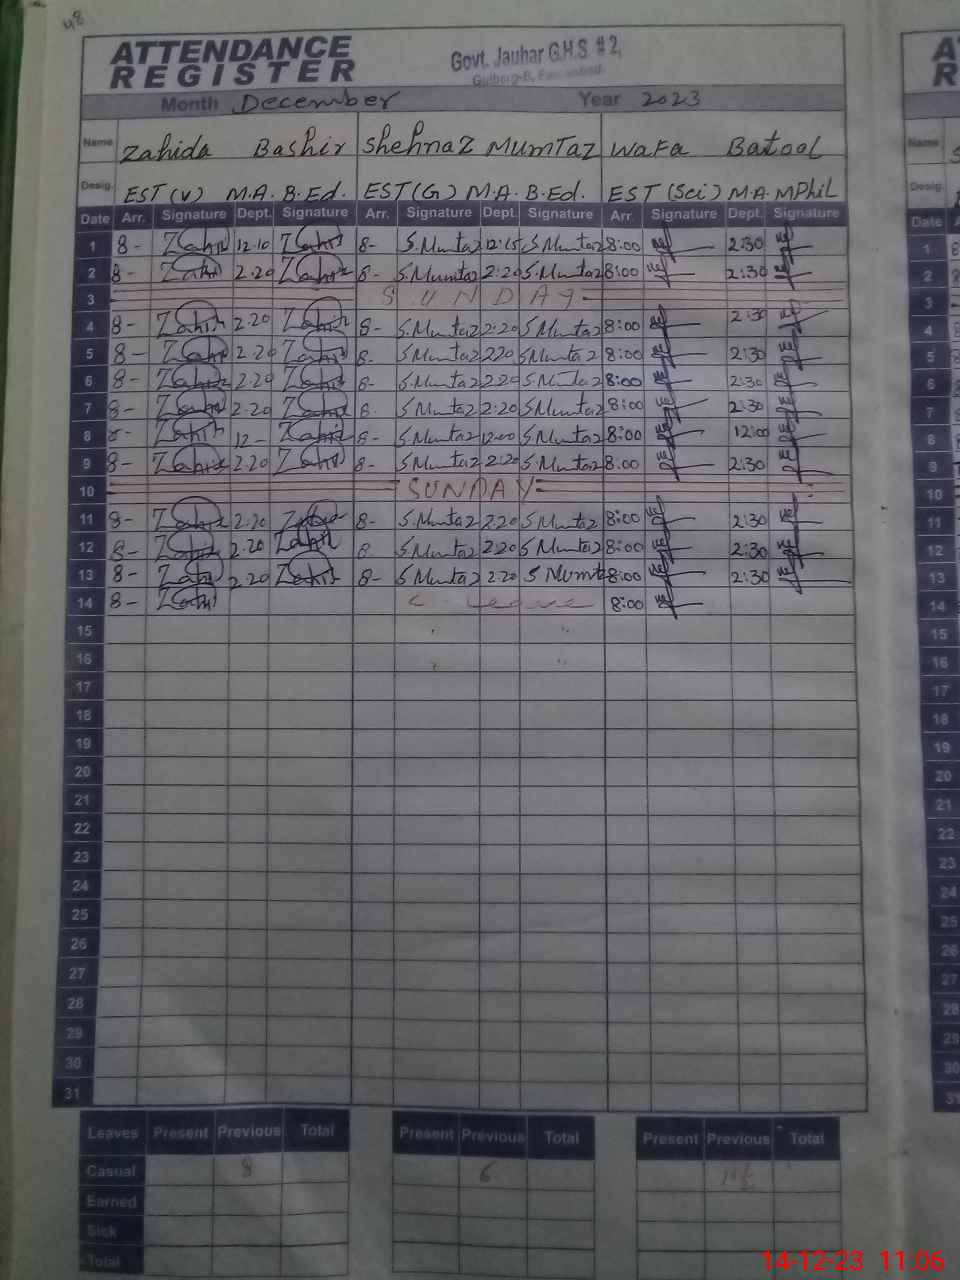 48
ATTENDANCE
REGISTER
Govt. Jauhar G.H.S. # 2,
Gulberg-B, Faisalabad.
Month December Year 2023
Name Zahida Bashir Shehnaz Mumtaz Wafa Batool
Desig. EST (V) M.A. B.Ed. EST (G) M.A. B.Ed. EST (Sci) M.A. MPhil
Date Arr. Signature Dept. Signature Arr. Signature Dept. Signature Arr. Signature Dept. Signature
1 8- Zahid 12.10 Zahid 8- S.Mumtaz 12:15 S Mumtaz 8:00 2:30
2 8- Zahid 2.20 Zahid 8- S.Mumtaz 2:20 S.Mumtaz 8:00 2:30
3 SUNDAY
4 8- Zahid 2.20 Zahid 8- S.Mumtaz 2:20 S Mumtaz 8:00 2:30
5 8- Zahid 2.20 Zahid 8- S Mumtaz 2.20 S Mumtaz 8:00 2:30
6 8- Zahid 2.20 Zahid 8- S.Mumtaz 2.20 S Mumtaz 8:00 2:30
7 8- Zahid 2.20 Zahid 8- S Mumtaz 2:20 S Mumtaz 8:00 2:30
8 8- Zahid 12- Zahid 8- S.Mumtaz 12:00 S Mumtaz 8:00 12:00
9 8- Zahid 2.20 Zahid 8- S Mumtaz 2:20 S Mumtaz 8:00 2:30
10 SUNDAY
11 8- Zahid 2.20 8- S.Mumtaz 2.20 S Mumtaz 8:00 2:30
12 8- Zahid 2.20 Zahid 8 S Mumtaz 2:20 S Mumtaz 8:00 2:30
13 8- Zahid 2.20 Zahid 8- S Mumtaz 2.20 S Mumt 8:00 2:30
14 8- Zahid C- Leave 8:00
15
16
17
18
19
20
21
22
23
24
25
26
27
28
29
30
31
Leaves Present Previous Total Present Previous Total Present Previous Total
Casual 8 6
Earned
Sick
Total
14-12-23 11:06